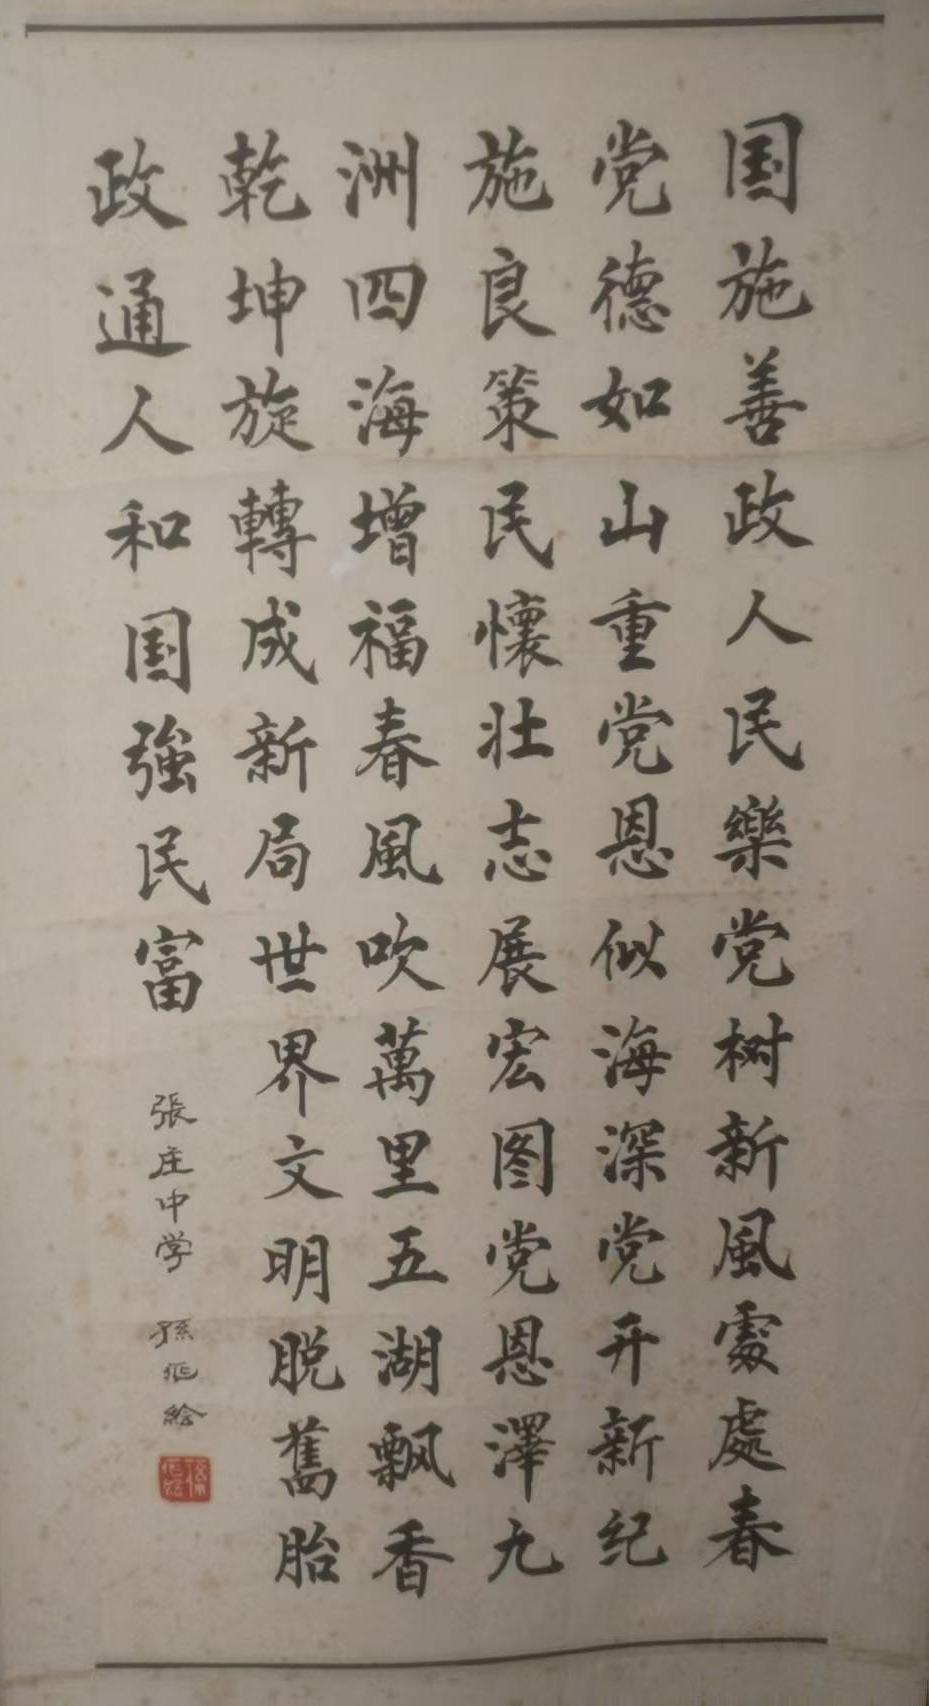 国施善政人民樂党树新風處處春
党德如山重党恩似海深党开新纪
施良策民懷壮志展宏图党恩澤九
洲四海增福春風吹萬里五湖飘香
乾坤旋轉成新局世界文明脱舊胎
政通人和国強民富
張庄中学 孫 絵